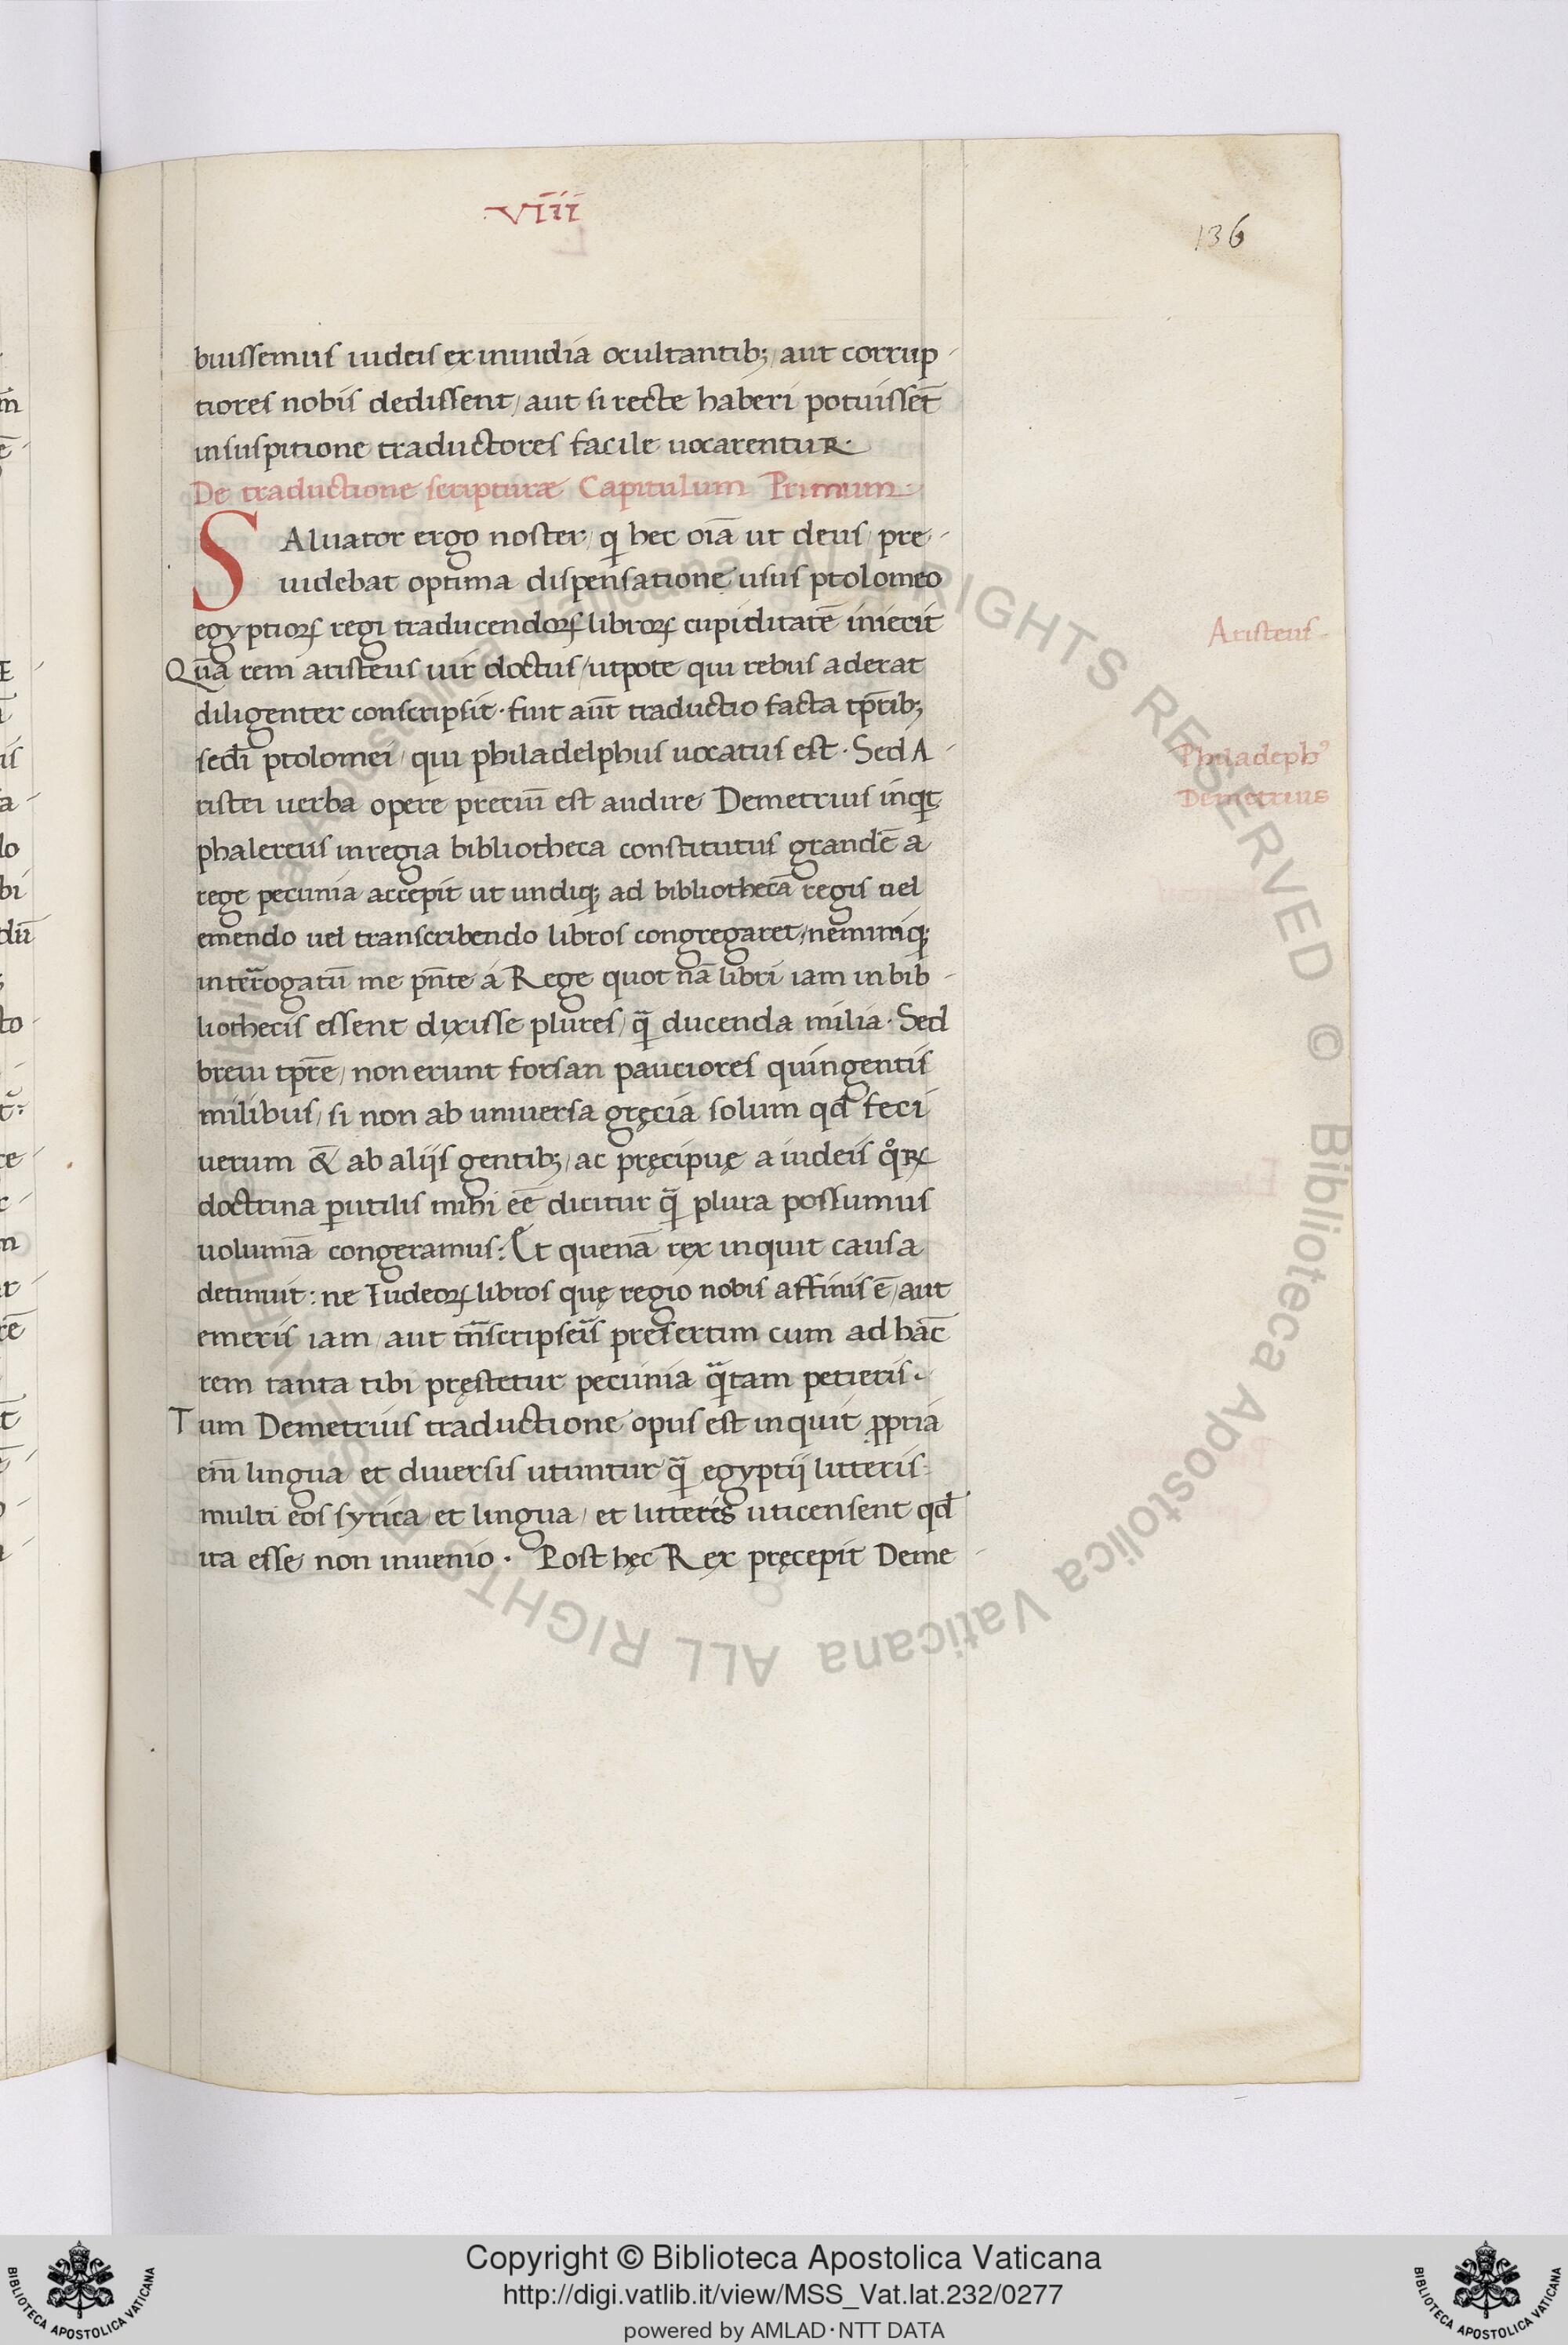 VIII
136
buissemus iudeis ex inuidia ocultantib; / aut corrup-
tiores nobis dedissent / aut si recte haberi potuissēt
insuspitione traductores facile uocarentur.
De traductione scripturæ Capitulum Primum.
SAluator ergo noster / q hec oīa ut deus pre-
uidebat optima dispensatione usus ptolomeo
egyptioꝝ regi traducendoꝝ libroꝝ cupiditatē iniecit
Quā rem aristeus uir doctus / utpote qui rebus aderat
diligenter conscripsit. fuit aūt traductio facta tp̄rib;
sedi ptolomei / qui philadelphus uocatus est. Sed A-
ristei uerba opere pretiū est audire Demetrius inqt
phalereus inregia bibliotheca constitutus grandē a
rege pecunia accepit ut undiq; ad bibliothecā regis uel
emendo uel transcribendo libros congregaret / neminiq;
interrogatū me pn̄te a Rege quot nā libri iam in bib-
liothecis essent dixisse plures / qᷓ ducenda milia. Sed
breui tp̄re / non erunt forsan pauciores quingentis
milibus / si non ab uniuersa gręcia solum qd feci
uerum & ab alijs gentib; / ac pręcipuę a iudeis qͦꝝ
doctrina ꝑutilis mihi eē dicitur qᷓ plura possumus
uolumīa congeramus: Et quenā rex inquit causa
detinuit: ne Iudeoꝝ libros quę regio nobis affinis ē / aut
emeris iam / aut tn̄scripseis presertim cum ad hāc
rem tanta tibi pręstetur pecunia qᷓtam petieris.
Tum Demetrius traductione opus est inquit ꝓpria
em̄ lingua et diuersis utuntur qᷓ egyptij litteris.
multi eos syrica et lingua / et litteris uti censent qd
ita esse non inuenio. Post hęc Rex pręcepit Deme-
Aristeus
Philadephꝰ
Demetrius
Copyright © Biblioteca Apostolica Vaticana
http://digi.vatlib.it/view/MSS_Vat.lat.232/0277
powered by AMLAD·NTT DATA
BIBLIOTECA APOSTOLICA VATICANA
BIBLIOTECA APOSTOLICA VATICANA